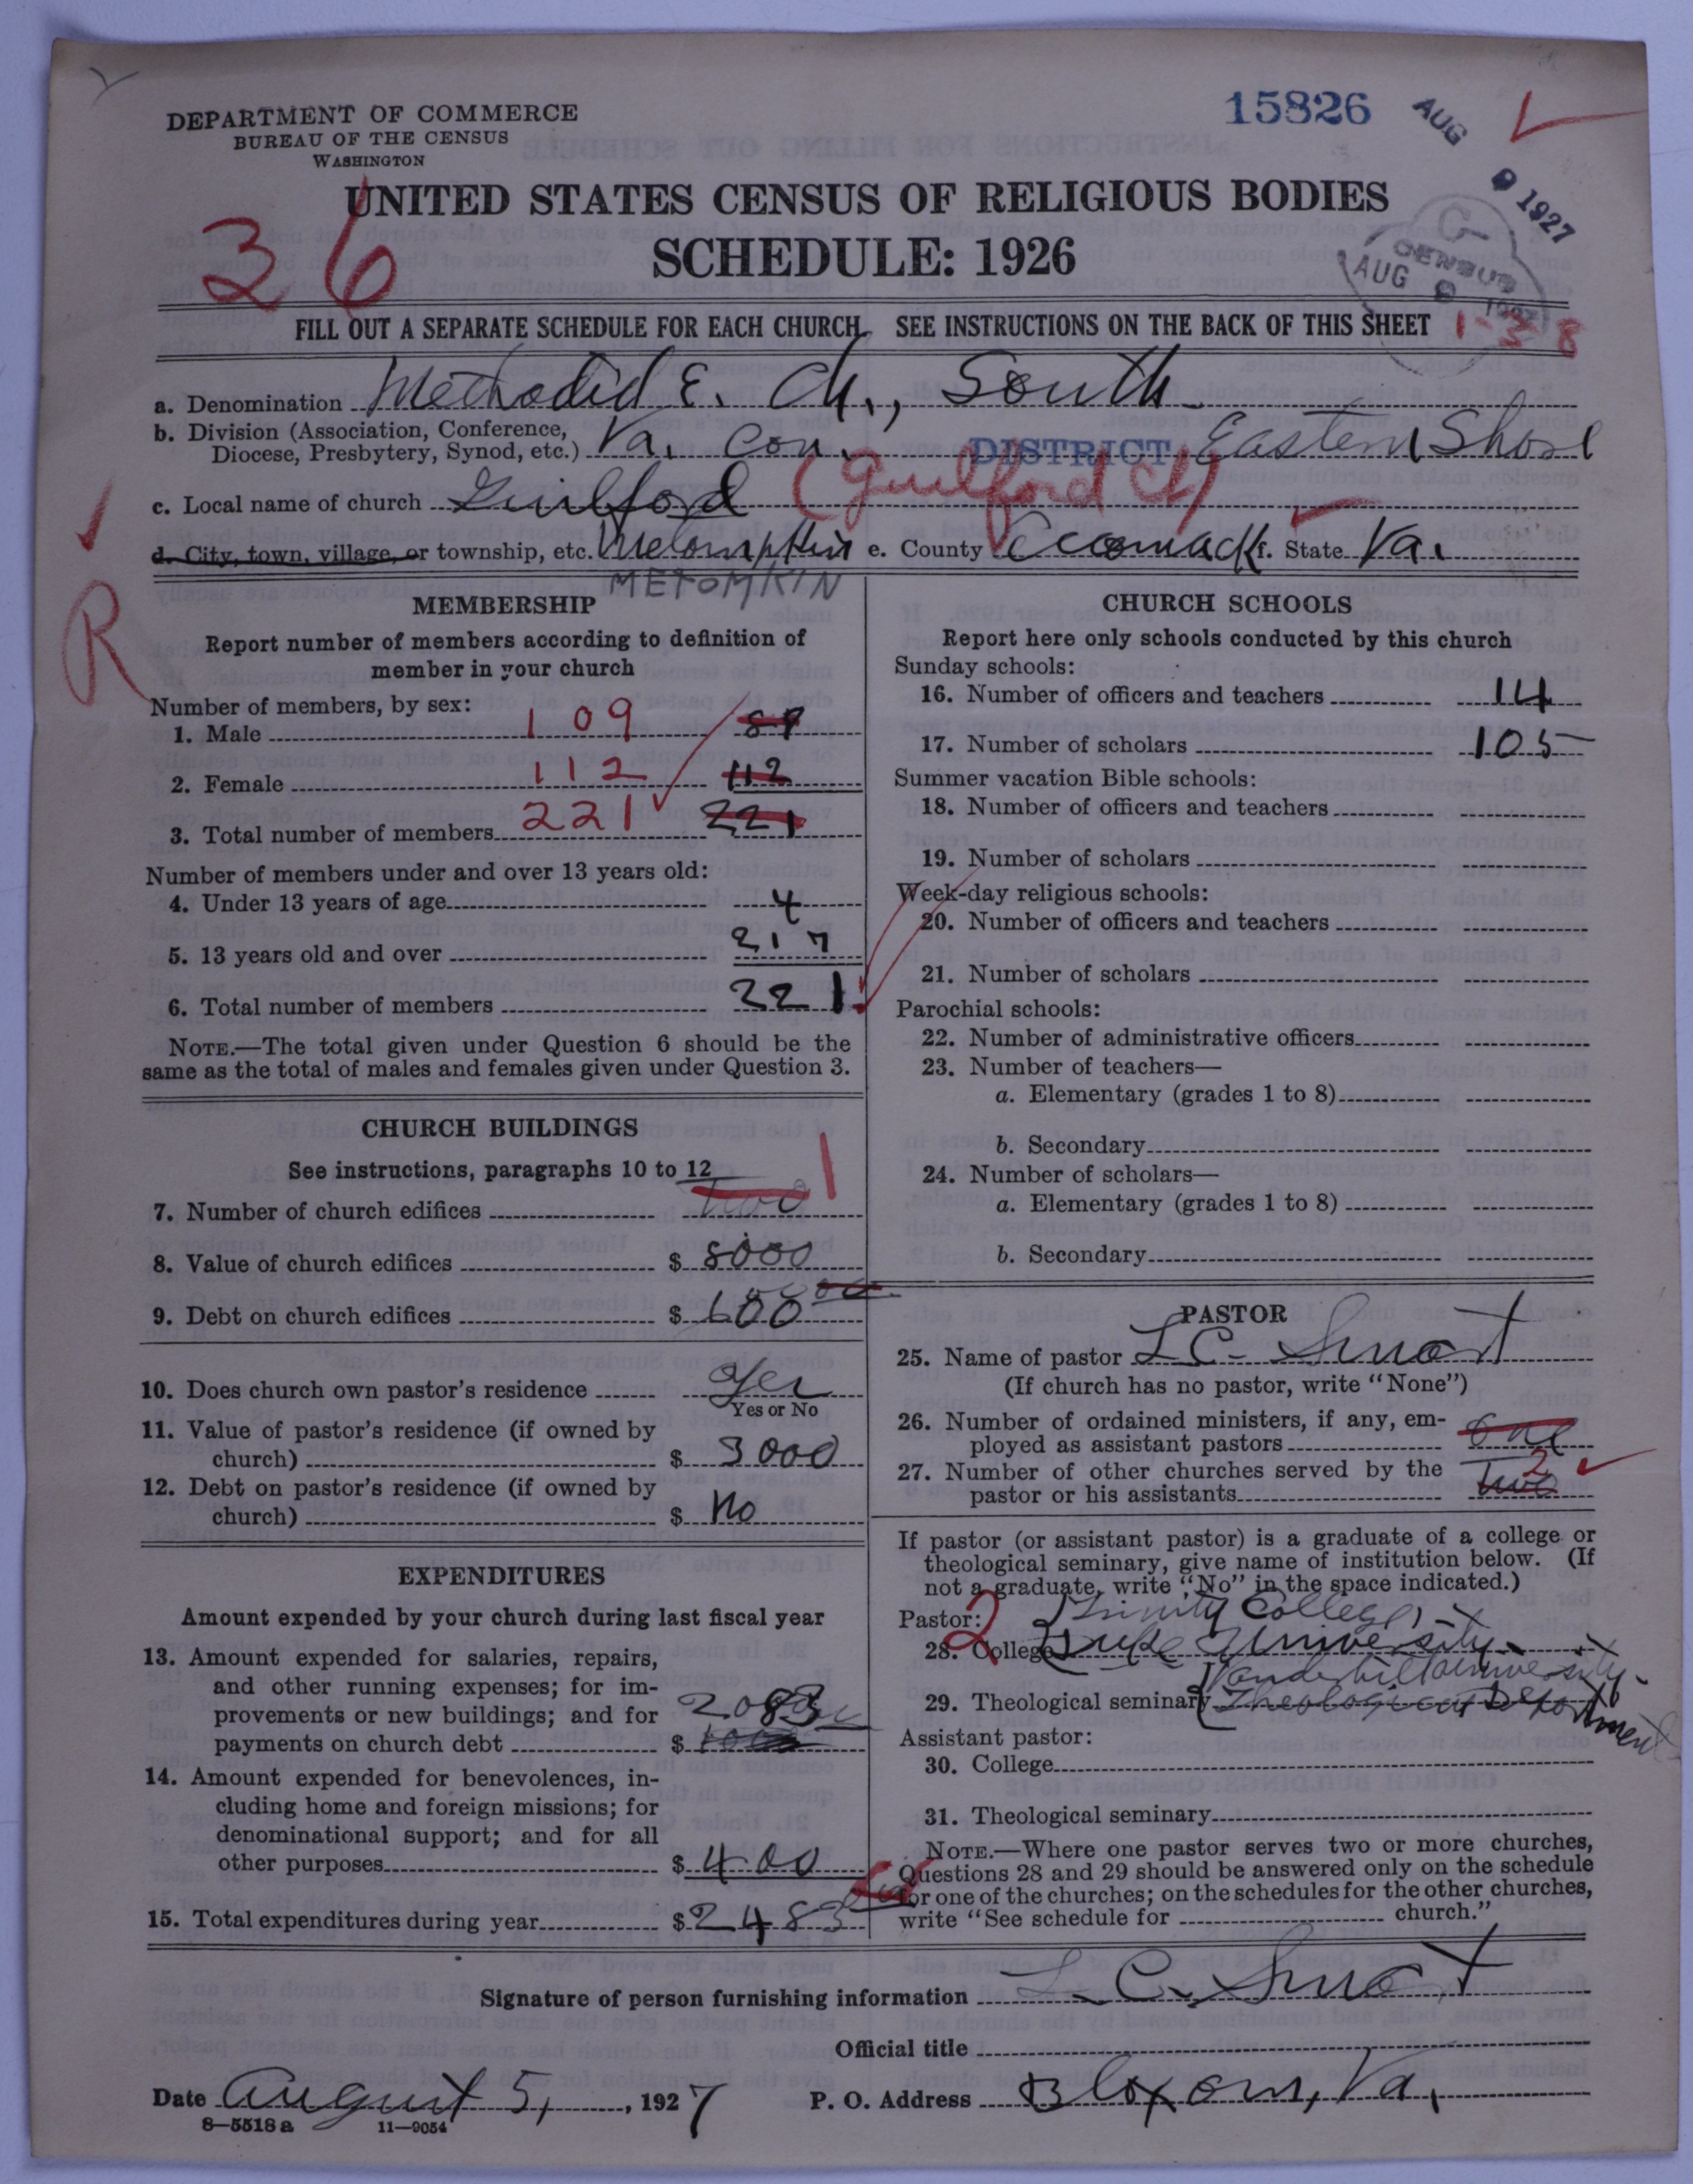 15826
AUG 9 1927
DEPARTMENT OF COMMERCE
BUREAU OF THE CENSUS
WASHINGTON
UNITED STATES CENSUS OF RELIGIOUS BODIES
36
SCHEDULE: 1926
G
CENSUS
AUG 9 1927
FILL OUT A SEPARATE SCHEDULE FOR EACH CHURCH SEE INSTRUCTIONS ON THE BACK OF THIS SHEET
1-3-8
a. Denomination Methodist E. Ch., South
b. Division (Association, Conference, Diocese, Presbytery, Synod, etc.) Va. Con. DISTRICT Eastern Shore
c. Local name of church Guilford (Guilford Ch)
d. City, town, village, or township, etc. Metompkin e. County Accomack f. State Va.
METOMKIN
R
MEMBERSHIP
Report number of members according to definition of
member in your church
Number of members, by sex:
1. Male 109
2. Female 112 112
3. Total number of members 221 221
Number of members under and over 13 years old:
4. Under 13 years of age 4
5. 13 years old and over 217
6. Total number of members 221
NOTE.—The total given under Question 6 should be the
same as the total of males and females given under Question 3.
CHURCH BUILDINGS
See instructions, paragraphs 10 to 12
7. Number of church edifices two 1
8. Value of church edifices $ 8000
9. Debt on church edifices $ 600
10. Does church own pastor's residence Yes
Yes or No
11. Value of pastor's residence (if owned by
church) $ 3000
12. Debt on pastor's residence (if owned by
church) $ No
EXPENDITURES
Amount expended by your church during last fiscal year
13. Amount expended for salaries, repairs,
and other running expenses; for im-
provements or new buildings; and for 2083
payments on church debt $
14. Amount expended for benevolences, in-
cluding home and foreign missions; for
denominational support; and for all
other purposes $ 400
15. Total expenditures during year $ 2483
CHURCH SCHOOLS
Report here only schools conducted by this church
Sunday schools:
16. Number of officers and teachers 14
17. Number of scholars 105
Summer vacation Bible schools:
18. Number of officers and teachers
19. Number of scholars
Week-day religious schools:
20. Number of officers and teachers
21. Number of scholars
Parochial schools:
22. Number of administrative officers
23. Number of teachers—
a. Elementary (grades 1 to 8)
b. Secondary
24. Number of scholars—
a. Elementary (grades 1 to 8)
b. Secondary
PASTOR
25. Name of pastor L C. Smart
(If church has no pastor, write "None")
26. Number of ordained ministers, if any, em-
ployed as assistant pastors One
27. Number of other churches served by the 2
pastor or his assistants two
If pastor (or assistant pastor) is a graduate of a college or
theological seminary, give name of institution below. (If
not a graduate, write "No" in the space indicated.)
Pastor: 2 Trinity College,
28. College Duke University
Vanderbilt University
29. Theological seminary Theological Department
Assistant pastor:
30. College
31. Theological seminary
NOTE.—Where one pastor serves two or more churches,
Questions 28 and 29 should be answered only on the schedule
for one of the churches; on the schedules for the other churches,
write "See schedule for church."
Signature of person furnishing information L. C. Smart
Official title
Date August 5, 1927 P. O. Address Bloxom, Va.
8—5518a 11—9054